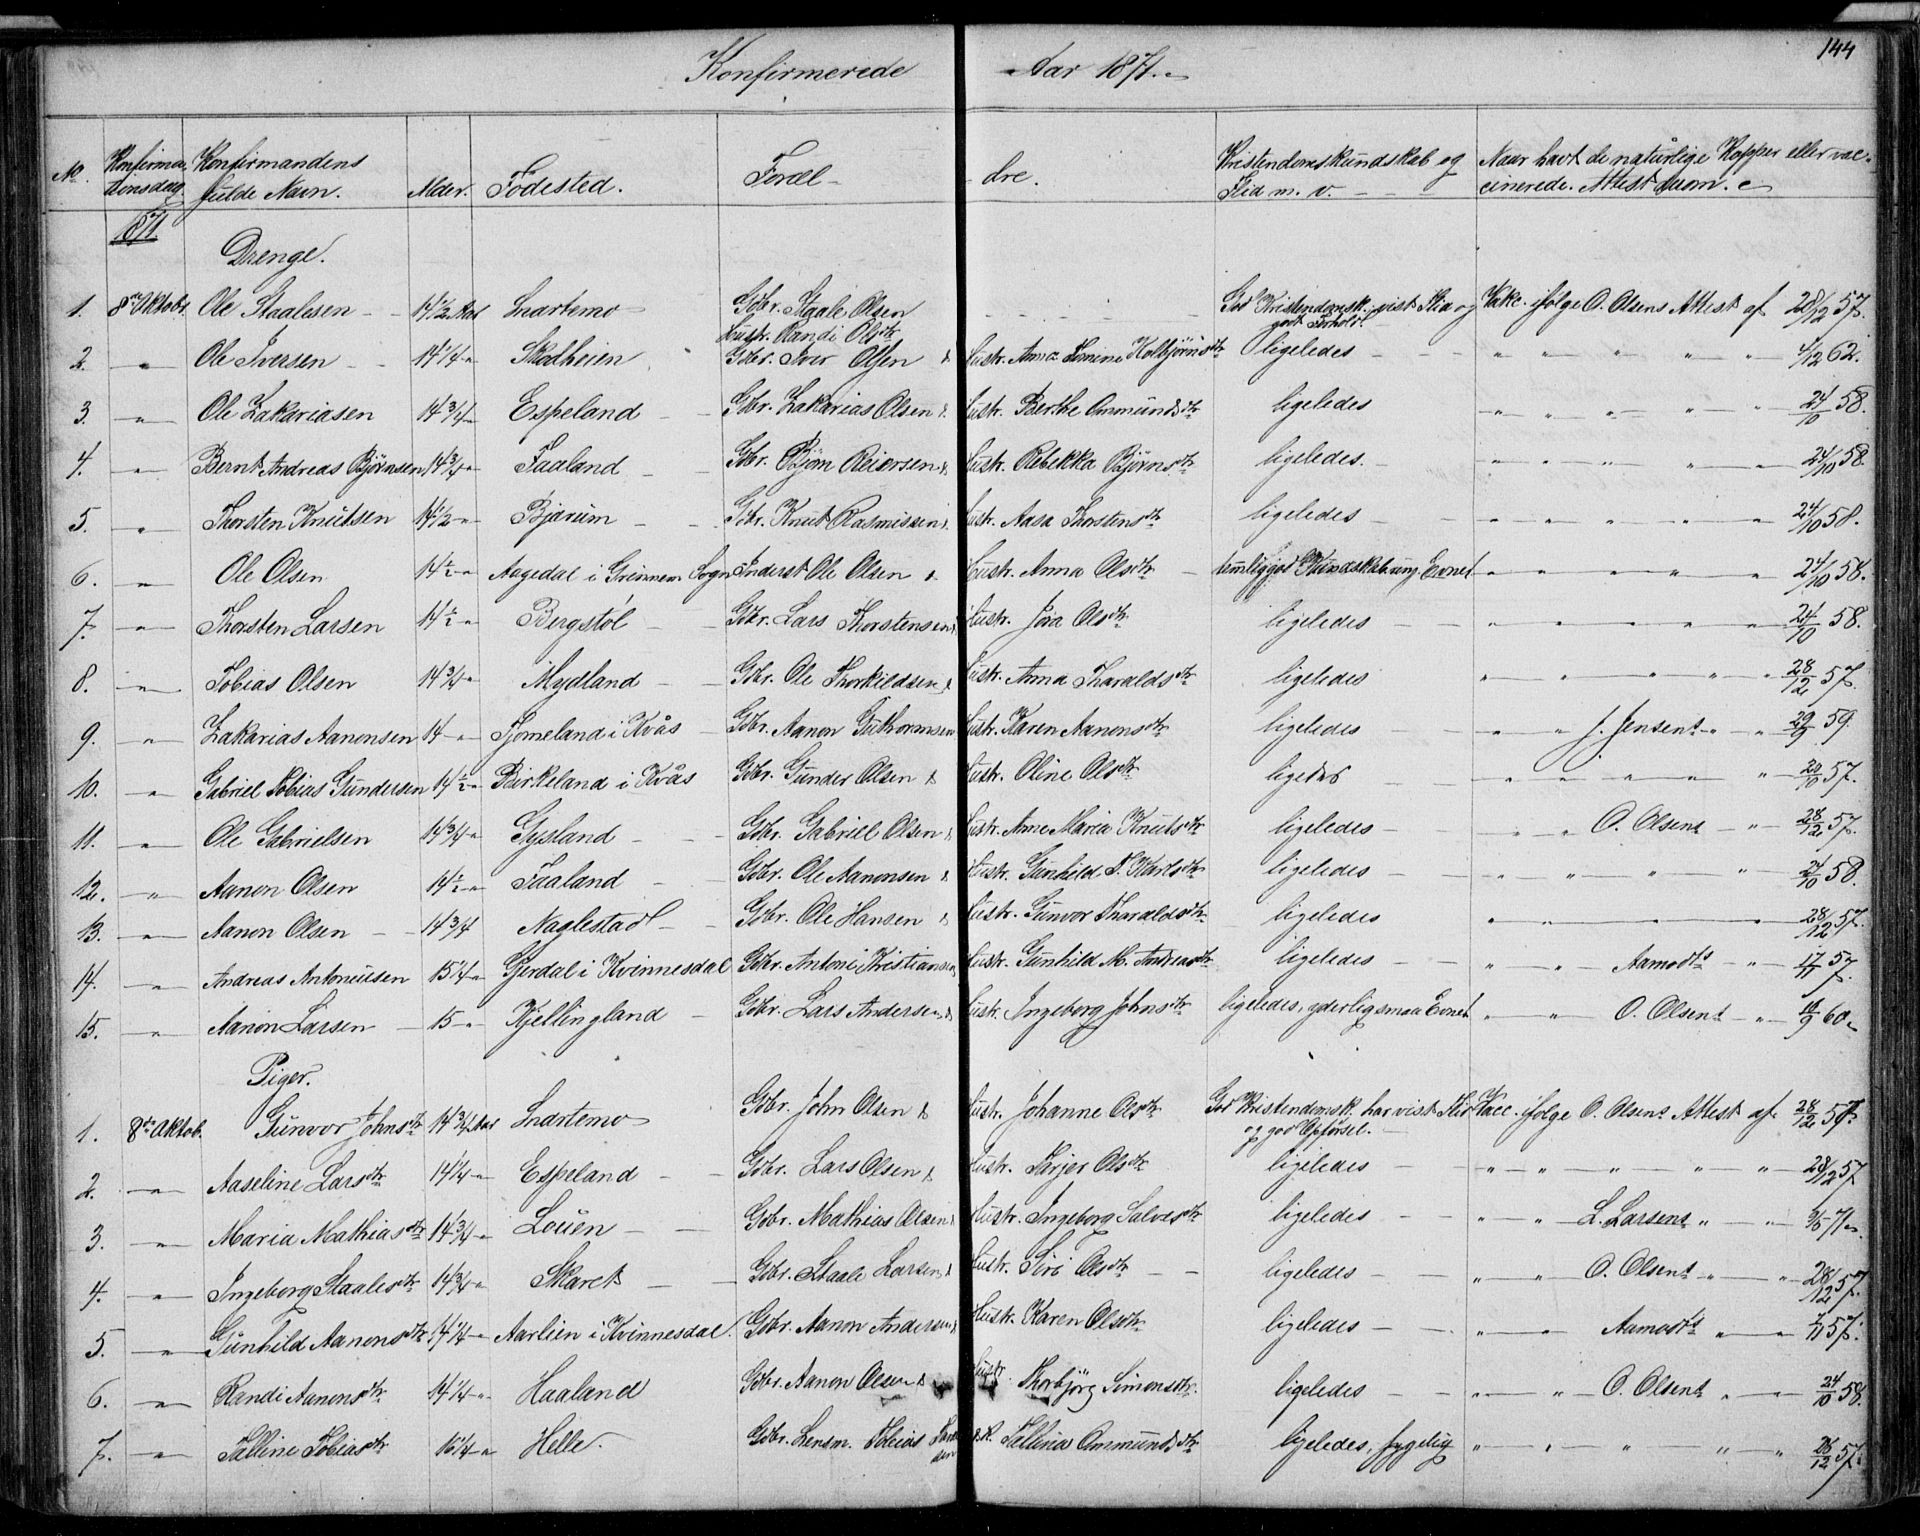 144
Konfirmerede Aar 1871.
No. Konfirma-tionsdag. Konfirmandens fulde Navn. Alder. Födested. Foræl-dre. Kristendomskundskab og Flid m. v. Naar havt de naturlige Kopper eller vac-cinerede. Attest derom.
1871.
Drenge.
1. 8de Oktobr. Ole Staalesen 14 1/2 Aar Snartemo Gbr. Staale Olsen Hustr. Randi Olsdtr God Kristendomsk. vist Flid og godt Forhold. Vakc. ifølge O. Olsens Attest af 28/12 57.
2. " Ole Iversen 14 1/4 " Skodheim Gbr. Iver Olsen & Hustr. Anna Tomine Kolbjörnsdtr ligeledes " " " " " 4/12 62.
3. " Ole Zakariasen 14 3/4 " Espeland Gbr. Zakarias Olsen & Hustr. Berthe Ommundsdtr ligeledes " " " " " 24/10 58.
4. " Bernt Andreas Bjørnsen 14 3/4 " Faaland Gbr. Bjørn Reiersen & Hustr. Rebekka Bjørnsdtr ligeledes. " " " " " 24/10 58.
5. " Thorsten Knutsen 14 1/2 " Bjærum Gbr. Knut Rasmussen & Hustr. Aasa Thorstensdtr ligeledes " " " " " 24/10 58.
6. " Ole Olsen 14 1/2 " Aagedal i Grinnem Sogn Inderst Ole Olsen & Hustr. Anna Olsdtr temlig god Kundskab, ung. Evner " " " " " 24/10 58.
7. " Thorsten Larsen 14 1/2 " Bergstöl Gbr. Lars Thorstensen & Hustr. Jöra Olsdtr ligeledes " " " " " 24/10 58.
8. " Tobias Olsen 14 3/4 " Mydland Gbr. Ole Thorkildsen & Hustr. Anna Tharaldsdtr ligeledes " " " " " 28/12 57.
9. " Zakarias Aanonsen 14 " Tjomeland i Kvås Gbr. Aanon Guthormsen Hustr. Karen Aanonsdtr ligeledes " " J. Jensens " " 29/9 59.
10. " Gabriel Tobias Gundersen 14 1/2 " Birkeland i Kvås Gbr. Gunder Olsen & Hustr. Oline Olsdtr ligedes " " " " " 20/10 57.
11. " Ole Gabrielsen 14 3/4 " Gysland Gbr. Gabriel Olsen & Hustr. Anne Maria Knutsdtr ligeledes " " O. Olsens " 28/12 57.
12. " Aanon Olsen 14 1/2 " Faaland Gbr. Ole Aanonsen & Hustr. Gunhild T. Karlsdtr ligeledes " " " " 24/10 58.
13. " Aanon Olsen 14 3/4 Naglestad Gbr. Ole Hansen & Hustr. Gunvor Tharaldsdtr ligeledes " " " " 28/12 57.
14. " Andreas Antoniusen 15 1/4 " Gjerdal i Kvinnesdal Gbr. Antoni Kristiansen Hustr. Gunhild M. Andreasdtr ligeledes " " Aamodts " 17/11 57.
15. " Aanon Larsen 15 " Kjellingland Gbr. Lars Andersen & Hustr. Ingeborg Johnsdtr ligeledes, yderlig smaa Evner " " O. Olsens " 16/9 60.
Piger.
1. 8de Oktob. Gunvor Johnsdtr 14 3/4 Aar Snartemo Gbr. John Olsen & Hustr. Johanne Olsdtr God Kristendomsk. har vist Flid og god Opførsel. Vacc. ifølge O. Olsens Attest af 28/12 57.
2. " Aaseline Larsdtr 14 1/4 " Espeland Gbr. Lars Olsen & Hustr. Tarjer Olsdtr ligeledes " " " " " 28/12 57
3. " Maria Mathiasdtr 14 3/4 " Louen Gbr. Mathias Olsen & Hustr. Ingeborg Salvesdtr ligeledes " " L. Larsens " " 71
4. " Ingeborg Staalesdtr 14 3/4 " Skaret Gbr. Staale Larsen & Hustr. Siri Olsdtr ligeledes " " O. Olsens " " 28/12 57.
5. " Gunhild Aanonsdtr 14 1/4 " Aarlien i Kvinnesdal. Gbr. Aanon Andersen & Hustr. Karen Olsdtr ligeledes " " Aamodts " " 7/11 57.
6. " Randi Aanonsdtr 14 1/4 " Haaland Gbr. Aanon Olsen & Hustr. Thorbjörg Simonsdtr. ligeledes " " O. Olsens " " 24/10 58.
7. " Talline Tobiasdtr 15 1/4 " Helle. Gbr. Lensm. Tobias Tallina Ommundsdtr ligeledes, sygelig " " " " " 28/12 57.